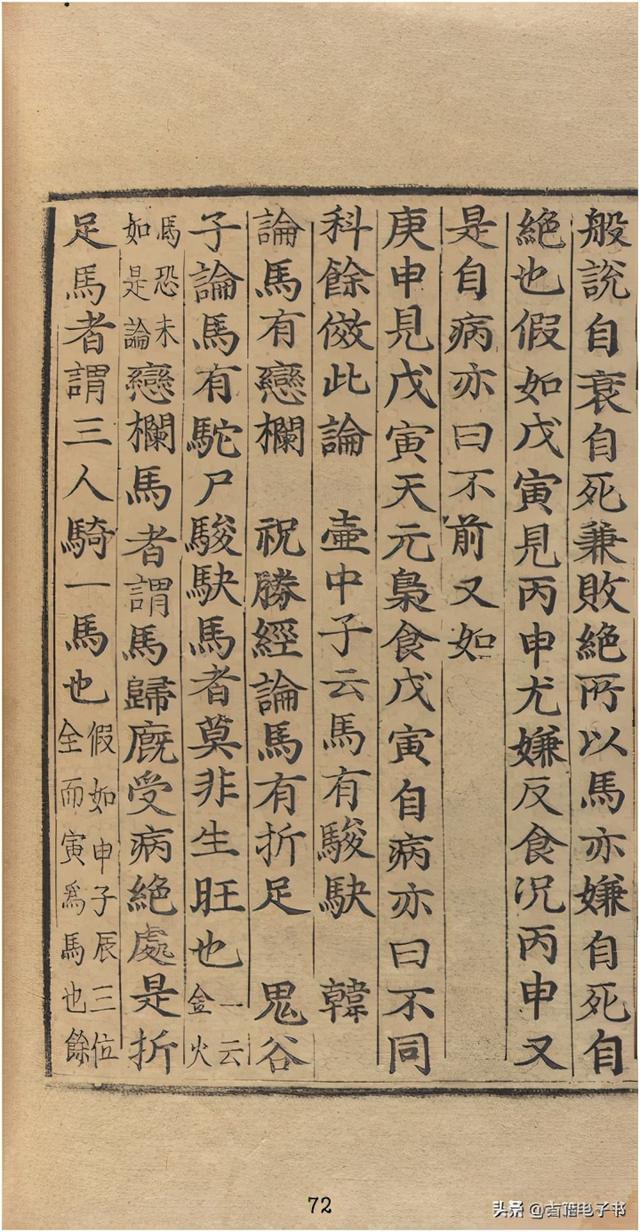 般說自衰自死兼敗絕所以馬亦嫌自死自
絕也假如戊寅見丙申尤嫌反食况丙申又
是自病亦曰不前又如
庚申見戊寅天元梟食戊寅自病亦曰不同
科餘傚此論 壷中子云馬有駿駃 韓
論馬有戀欄 祝勝經論馬有折足 鬼谷
子論馬有駝尸駿駃馬者莫非生旺也一云金火
馬恐未如是論戀欄馬者謂馬歸廐受病絕處是折
足馬者謂三人騎一馬也假如申子辰三位全而寅爲馬也餘
72
头条@古籍电子书